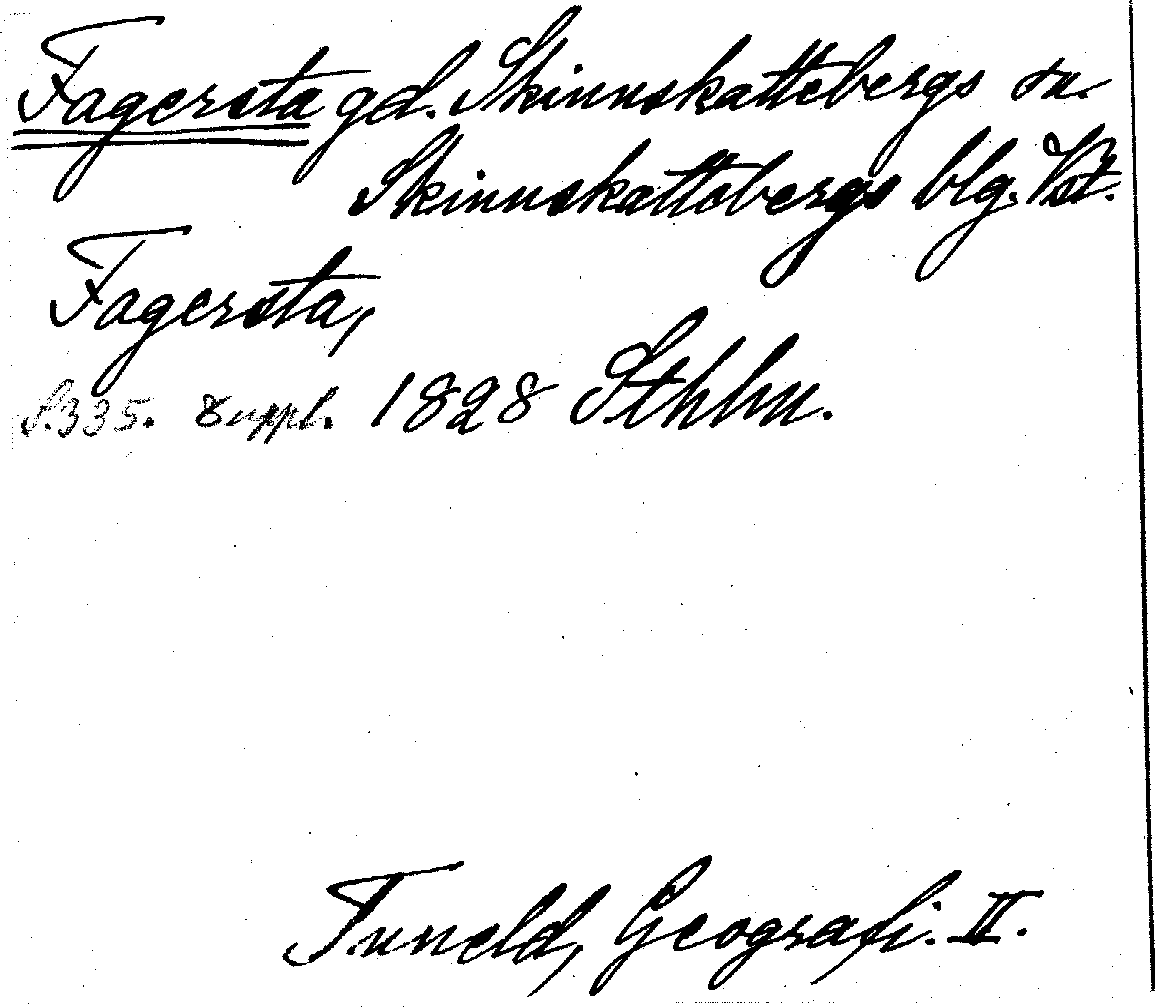 Fagersta gd. Skinnskattebergs sn.
Skinnskattebergs blg. Vst.
Fagersta,
S. 335. Suppl. 1828 Sthlm.
Tuneld, Geografi. II.